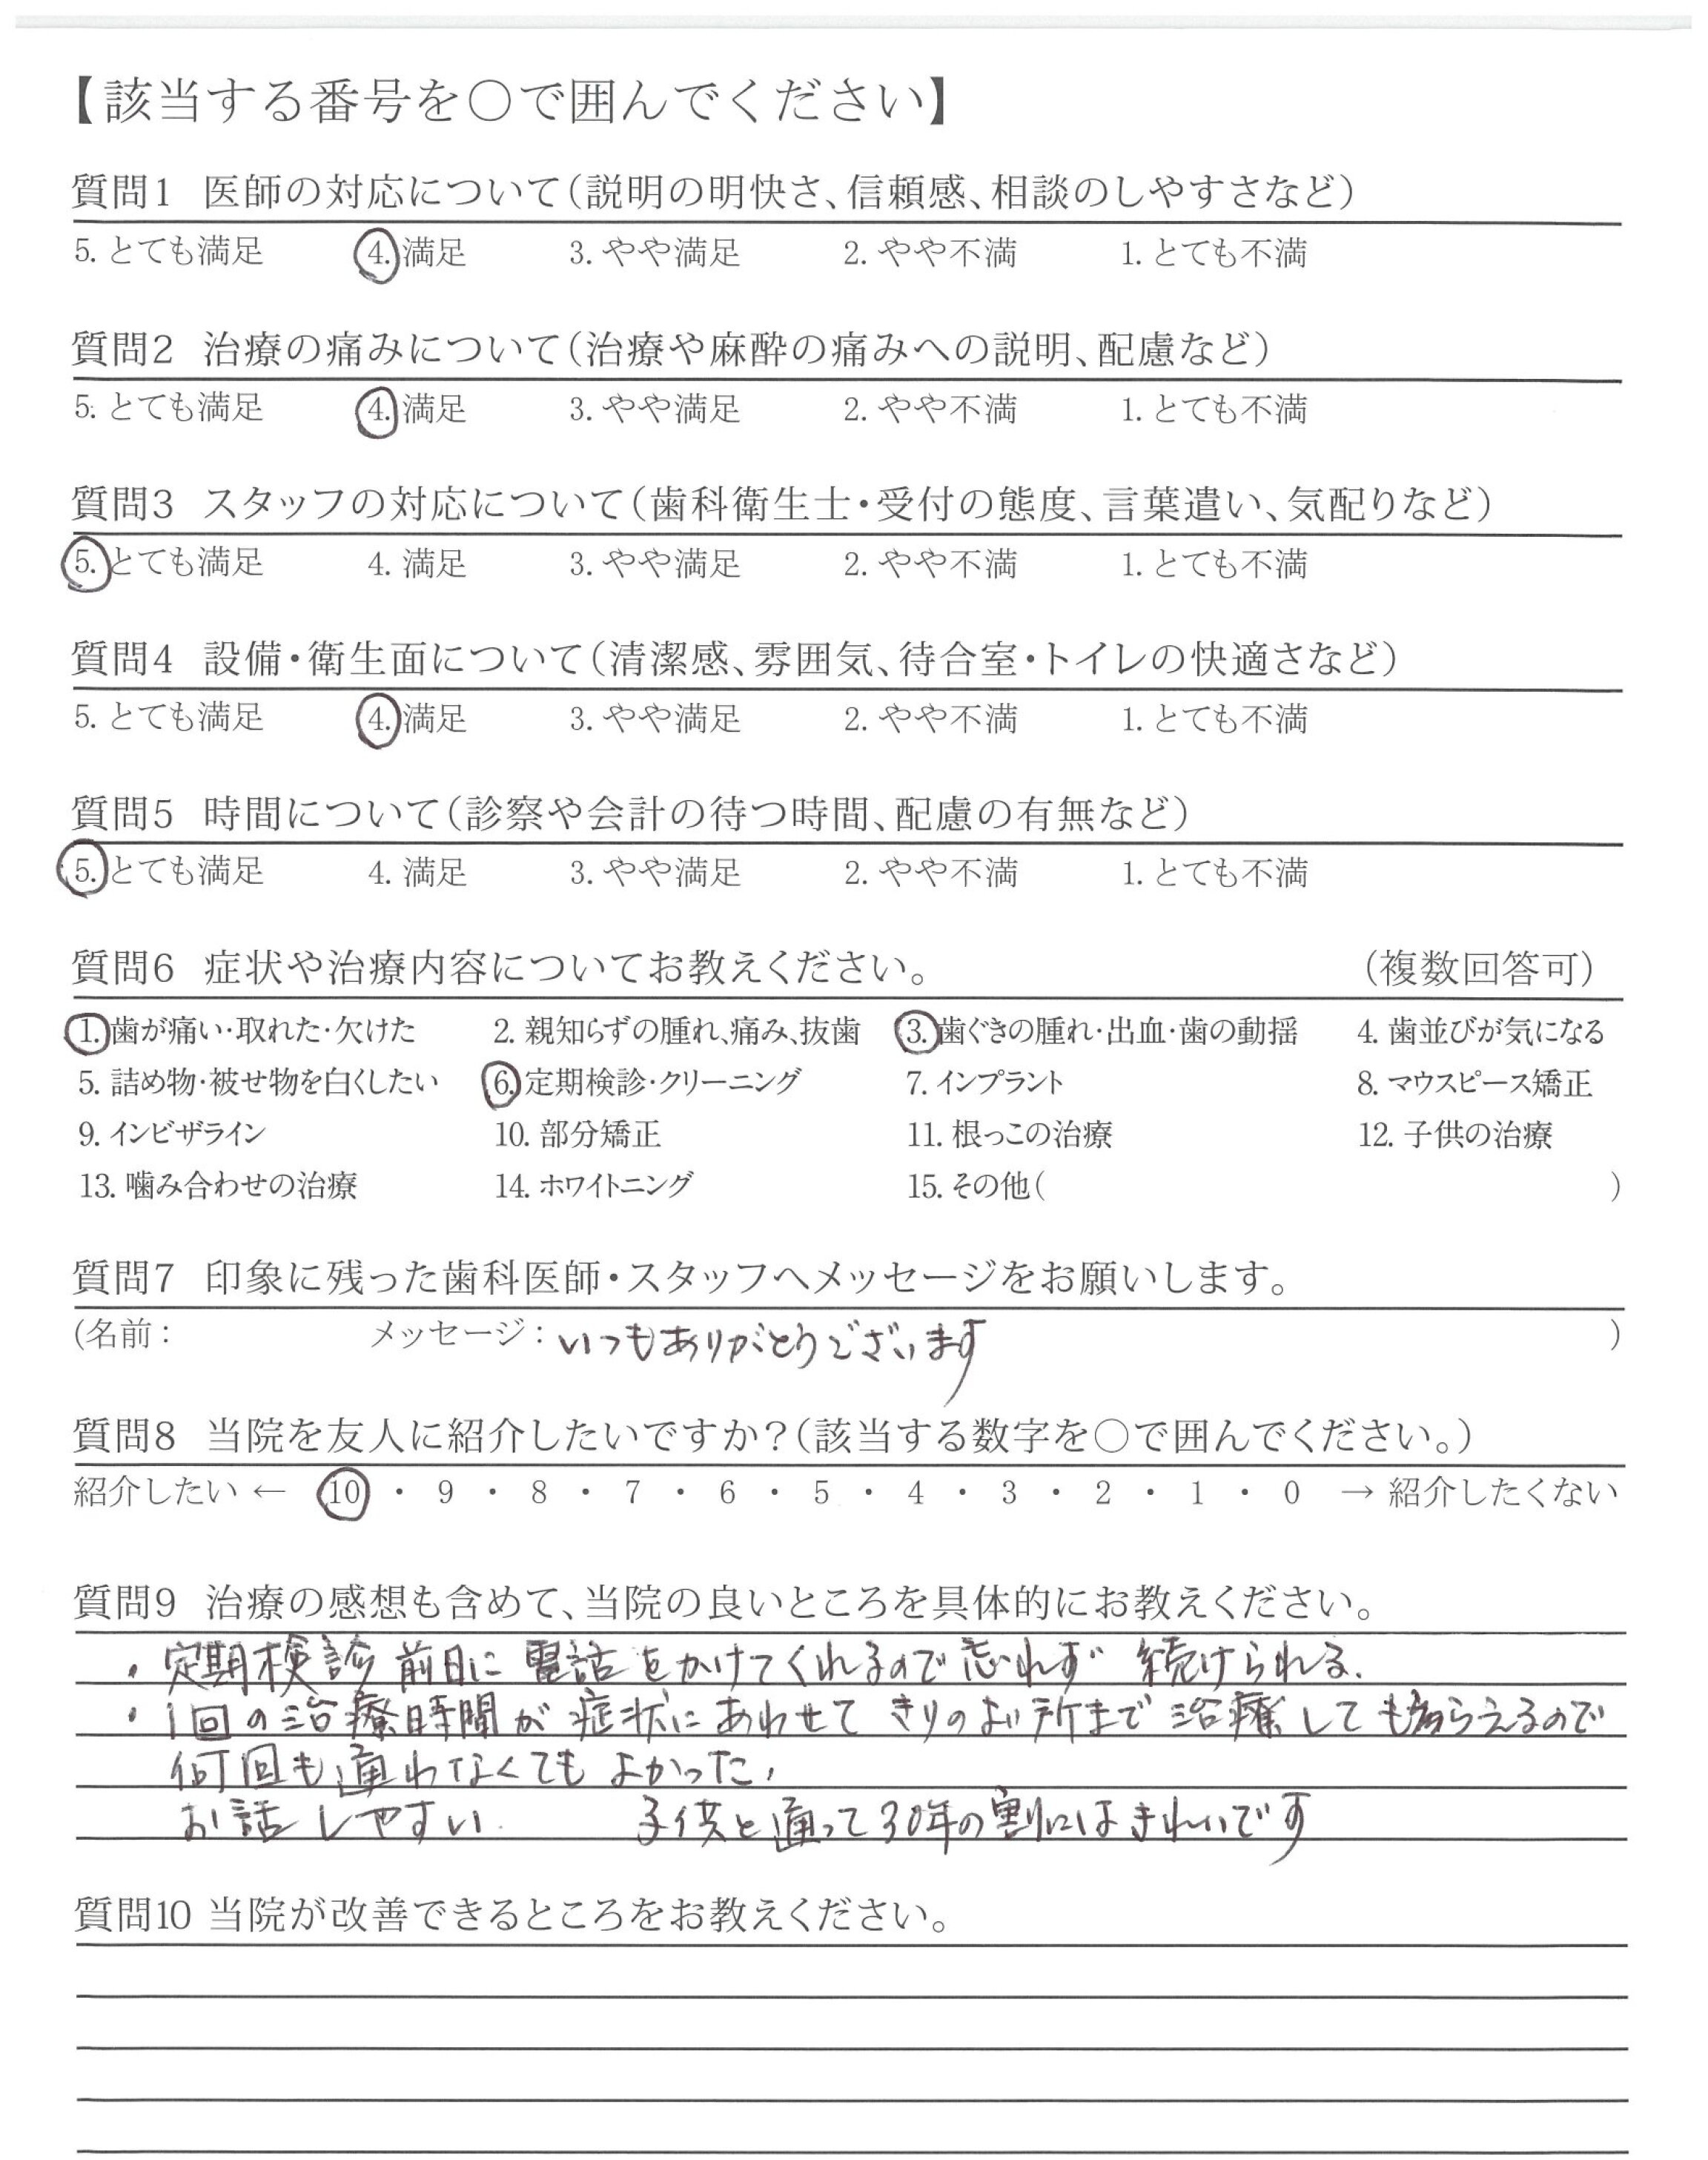 【該当する番号を○で囲んでください】
質問1 医師の対応について(説明の明快さ、信頼感、相談のしやすさなど)
5. とても満足 4. 満足 3. やや満足 2. やや不満 1. とても不満
質問2 治療の痛みについて(治療や麻酔の痛みへの説明、配慮など)
5. とても満足 4. 満足 3. やや満足 2. やや不満 1. とても不満
質問3 スタッフの対応について(歯科衛生士・受付の態度、言葉遣い、気配りなど)
5. とても満足 4. 満足 3. やや満足 2. やや不満 1. とても不満
質問4 設備・衛生面について(清潔感、雰囲気、待合室・トイレの快適さなど)
5. とても満足 4. 満足 3. やや満足 2. やや不満 1. とても不満
質問5 時間について(診察や会計の待つ時間、配慮の有無など)
5. とても満足 4. 満足 3. やや満足 2. やや不満 1. とても不満
質問6 症状や治療内容についてお教えください。 (複数回答可)
1. 歯が痛い・取れた・欠けた 2. 親知らずの腫れ、痛み、抜歯 3. 歯ぐきの腫れ・出血・歯の動揺 4. 歯並びが気になる
5. 詰め物・被せ物を白くしたい 6. 定期検診・クリーニング 7. インプラント 8. マウスピース矯正
9. インビザライン 10. 部分矯正 11. 根っこの治療 12. 子供の治療
13. 噛み合わせの治療 14. ホワイトニング 15. その他( )
質問7 印象に残った歯科医師・スタッフへメッセージをお願いします。
(名前: メッセージ: いつもありがとうございます )
質問8 当院を友人に紹介したいですか?(該当する数字を○で囲んでください。)
紹介したい ← 10 ・ 9 ・ 8 ・ 7 ・ 6 ・ 5 ・ 4 ・ 3 ・ 2 ・ 1 ・ 0 → 紹介したくない
質問9 治療の感想も含めて、当院の良いところを具体的にお教えください。
・定期検診前日に電話をかけてくれるので忘れず続けられる。
・1回の治療時間が症状にあわせてきりのよい所まで治療してもらえるので
何回も通わなくてもよかった。
お話しやすい 子供と通って30年の割にはきれいです
質問10 当院が改善できるところをお教えください。